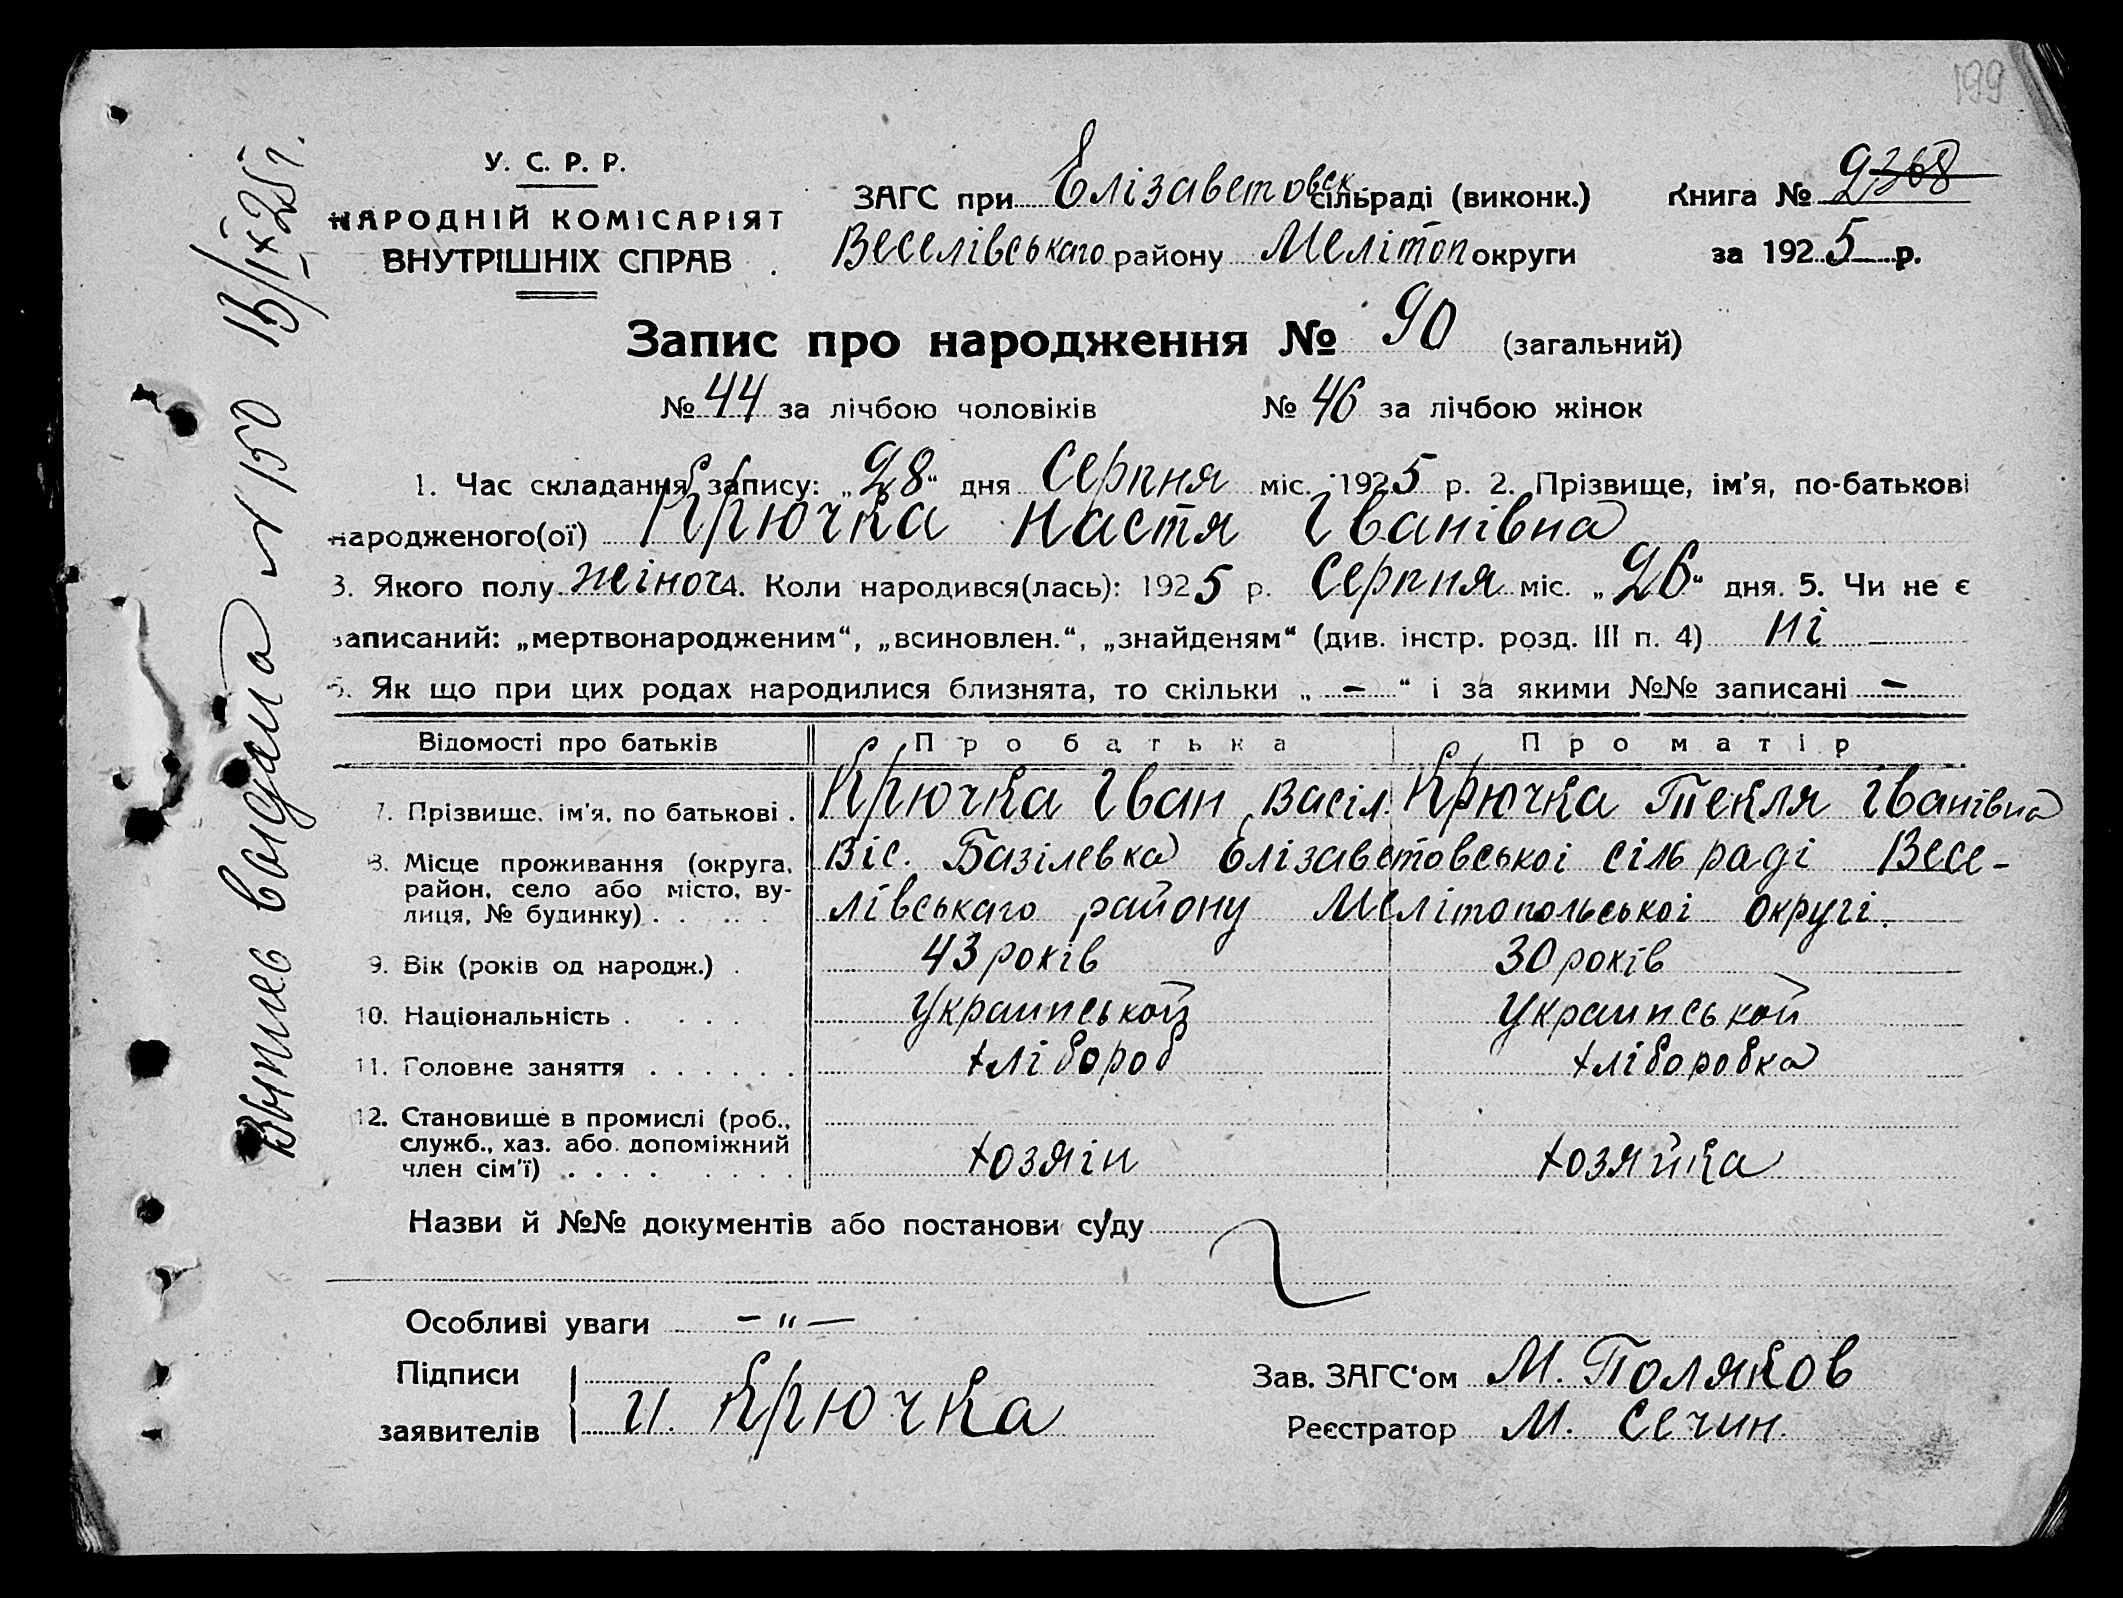 199
У. С. Р. Р.
НАРОДНІЙ КОМІСАРІЯТ
ВНУТРІШНІХ СПРАВ
ЗАГС при Елізаветовск сільраді (виконк.)
Веселівськаго району Мелітоп округи
Книга № 2368
за 1925 р.
Запис про народження № 90 (загальний)
№ 44 за лічбою чоловіків № 46 за лічбою жінок
1. Час складання запису: „28“ дня Серпня міс. 1925 р. 2. Прізвище, ім'я, по-батькові
народженого(ої) Крючка Настя Іванівна
3. Якого полу жіноч 4. Коли народився(лась): 1925 р. Серпня міс. „26“ дня. 5. Чи не є
записаний: „мертвонародженим“, „всиновлен.“, „знайденям“ (див. інстр. розд. III п. 4) ні —
6. Як що при цих родах народилися близнята, то скільки „ – “ і за якими №№ записані –
Відомості про батьків Про батька Про матір
7. Прізвище, ім'я, по батькові . Крючка Іван Васіл. Крючка Текля Іванівна
8. Місце проживання (округа, район, село або місто, вулиця, № будинку) . . . . . Віс. Базілевка Елізаветовськоі сіль раді Весе-
лівськаго району Мелітопольськоі округі.
9. Вік (років од народж.) . 43 років 30 років
10. Національність . . . . Украинськой Украинськой
11. Головне заняття . . . . . . хлібороб хліборобка
12. Становище в промислі (роб., служб., хаз. або допоміжний член сім'ї) . . . . . . . . хозяін хозяйка
Назви й №№ документів або постанови суду
Особливі уваги – „ —
Підписи
заявителів И. Крючка
Зав. ЗАГС'ом М. Поляков
Реєстратор М. Сечин.
Выпис видана № 150 15/IX 25 г.